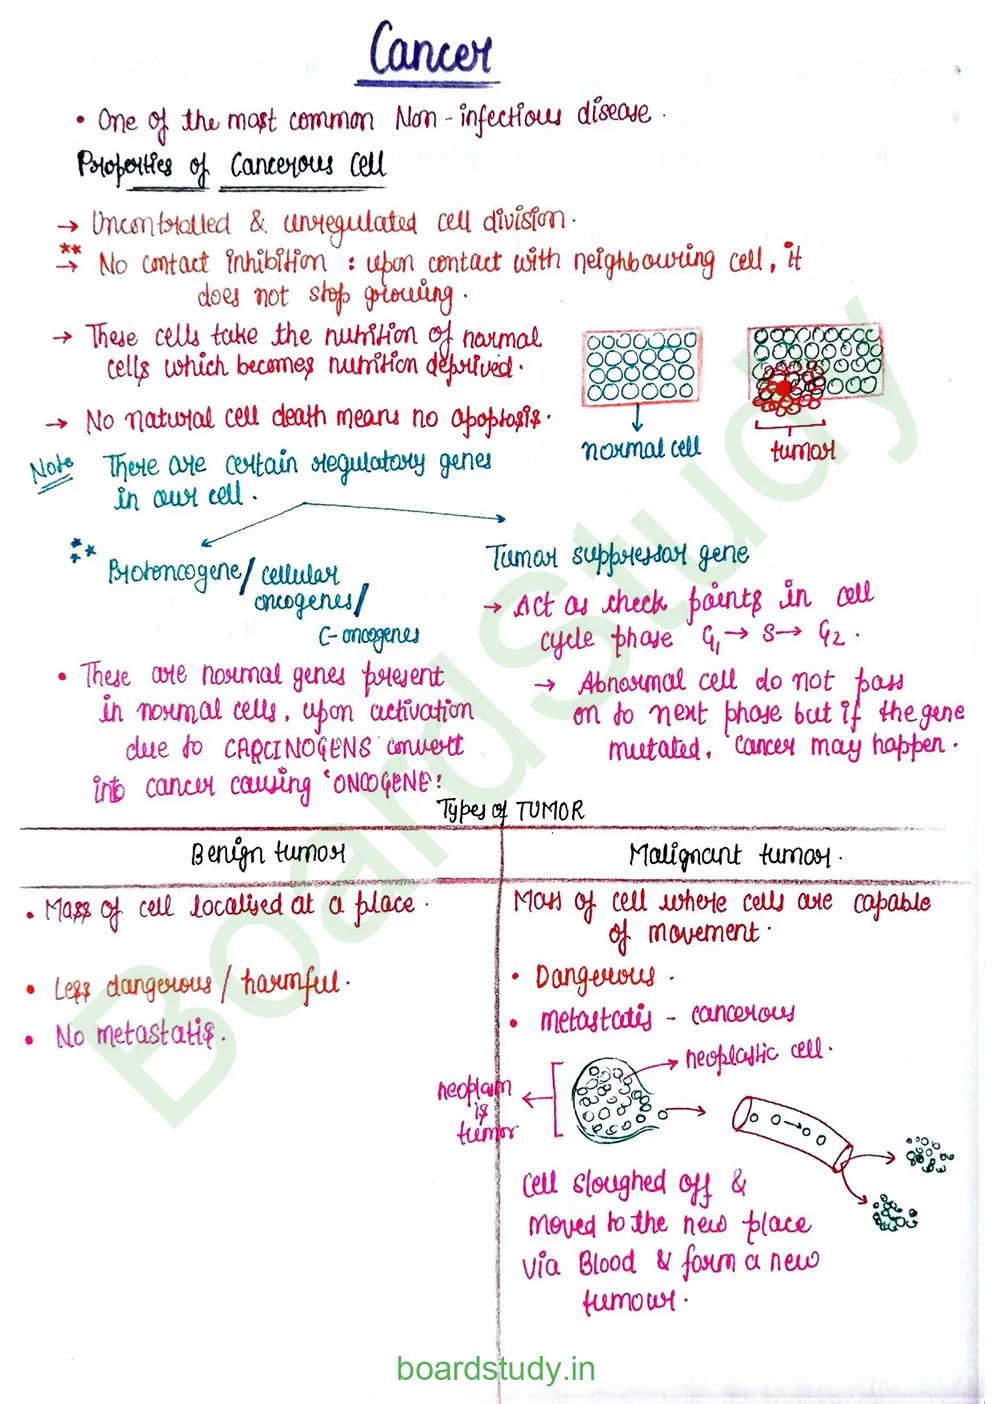 Cancer
• One of the most common Non-infectious disease.
Properties of Cancerous Cell
→ Uncontrolled & unregulated cell division.
** → No contact inhibition : upon contact with neighbouring cell, it
does not stop growing.
→ These cells take the nutrition of normal
cells which becomes nutrition deprived.
→ No natural cell death means no apoptosis.
normal cell
tumor
Note There are certain regulatory genes
in our cell.
*** Protoncogene/cellular
oncogenes/
C-oncogenes
• These are normal genes present
in normal cells, upon activation
due to CARCINOGENS convert
into cancer causing 'ONCOGENE'.
Tumor suppressor gene
→ Act as check points in cell
cycle phase G1 → S → G2.
→ Abnormal cell do not pass
on to next phase but if the gene
mutated, cancer may happen.
Types of TUMOR
Benign tumor
• Mass of cell localised at a place.
• Less dangerous/harmful.
• No metastatis.
Malignant tumor.
Mass of cell where cells are capable
of movement.
• Dangerous.
• metastatis - cancerous
neoplastic cell.
neoplasm
is
tumor
Cell sloughed off &
moved to the new place
via Blood & form a new
tumour.
BoardStudy
boardstudy.in